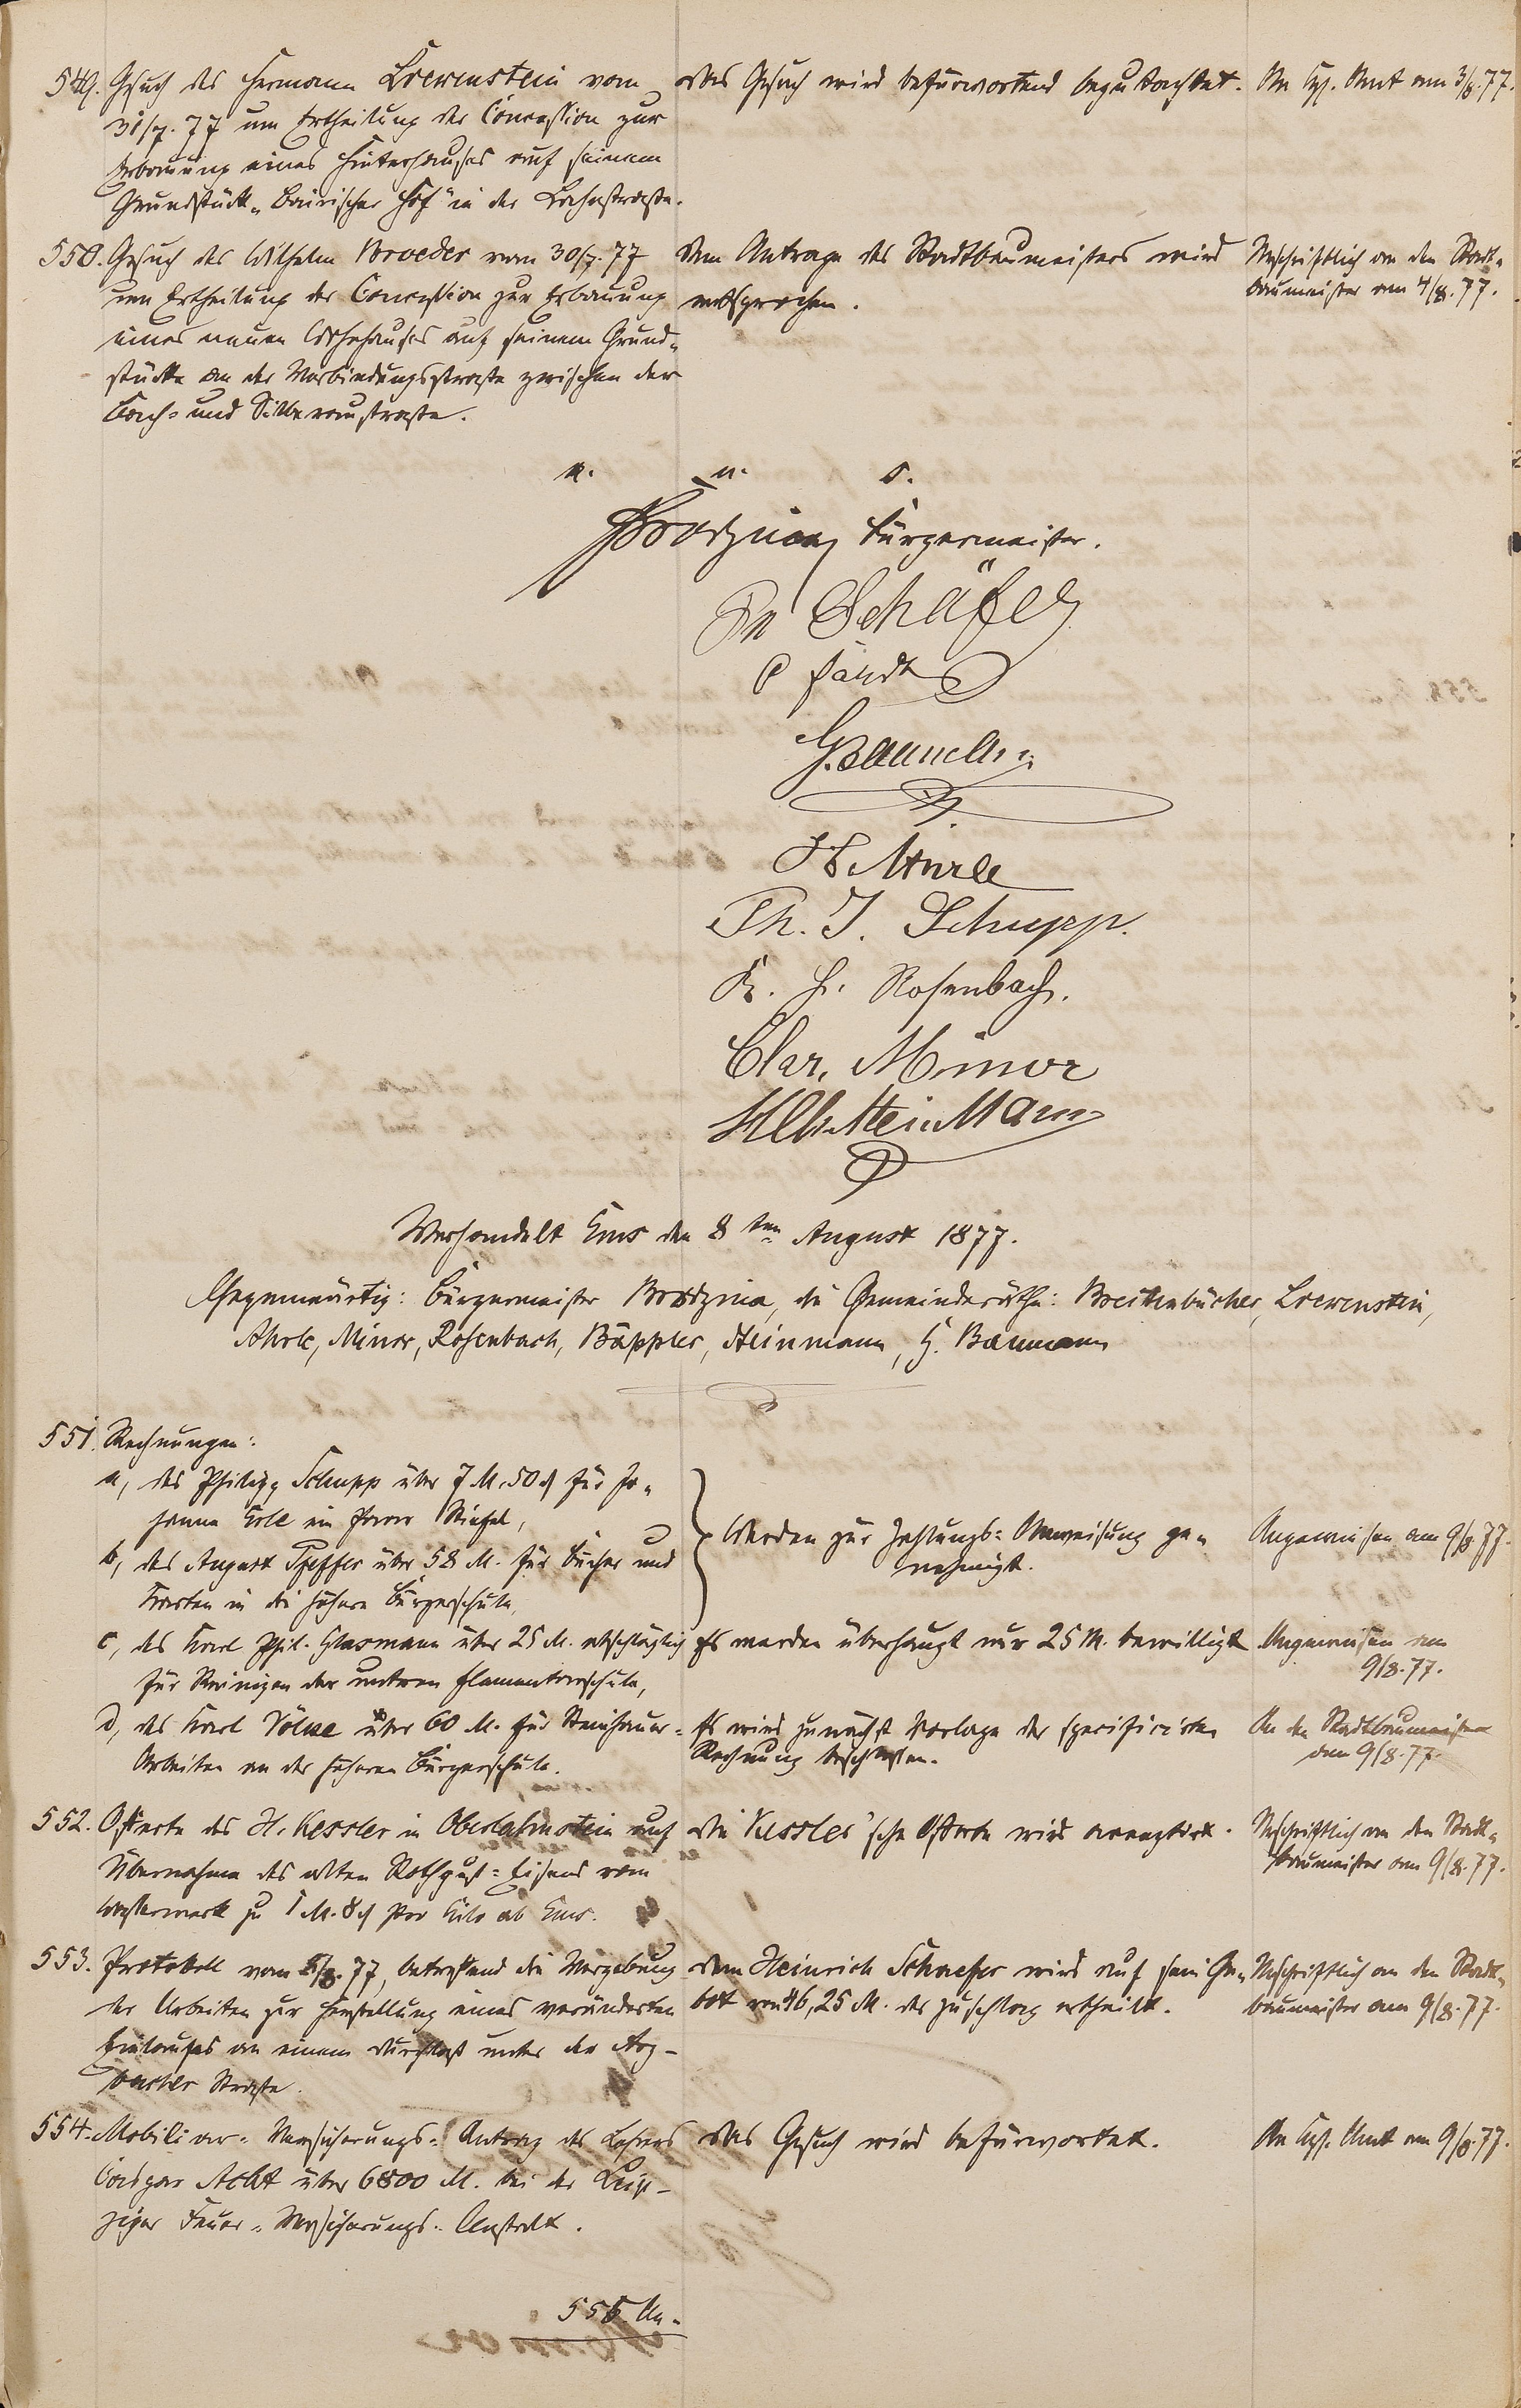 549. Gesuch des Hermann Loewenstein vom
31/7. 77 um Ertheilung der Concession zur
Erbauung eines Hinterhauses auf seinem
Grundstück „Bairischer Hof" in der Lahnstraße.
Das Gesuch wird befürwortend begutachtet.
An Kgl. Amt am 3/8. 77.
550. Gesuch des Wilhelm Broeder vom 30/7. 77
um Ertheilung der Concession zur Erbauung
eines neuen Wohnhauses auf seinem Grund-
stücke an der Verbindungsstraße zwischen der
Bach- und Silberaustraße.
Dem Antrage des Stadtbaumeisters wird
entsprochen.
Abschriftlich an den Stadt-
baumeister am 4/8. 77.
a. u. s.
Brodzina Bürgermeister.
Schäfer
G. Baumann
Th. J. Schupp.
K. H. Rosenbach.
Chr. Minor
Heinmann
Verhandelt Ems den 8ten August 1877.
Gegenwärtig: Bürgermeister Brodzina, die Gemeinderäthe: Breitenbücher, Loewenstein,
Ahrle, Minor, Rosenbach, Bäppler, Heinmann, G. Baumann
551. Rechnungen:
a, des Philipp Schupp über 7 M. 50 ₰ für Jo-
hanna Erle ein Paar Stiefel,
b, des August Pfeffer über 58 M. für Bücher und
Karten in die höhere Bürgerschule,
Werden zur Zahlungs-Anweisung ge-
nehmigt.
Angewiesen am 9/8. 77.
c, des Karl Phil. Glasmann über 25 M. abschläglich
für Reinigen der unteren Elementarschule,
Es werden überhaupt nur 25 M. bewilligt
Angewiesen am
9/8. 77.
d, des Karl Völke über 60 M. für Steinhauer-
Arbeiten an der höheren Bürgerschule.
Es wird zunächst Vorlage der specificirten
Rechnung beschlossen.
An den Stadtbaumeister
den 9/8. 77.
552. Offerte des H. Kessler in Oberlahnstein auf
Übernahme des alten Rothguß-Eisens vom
Wasserwerk zu 1 M. 8 ₰ pro Kilo ab Ems.
Die Kessler'sche Offerte wird acceptirt.
Abschriftlich an den Stadt-
baumeister am 9/8. 77.
553. Protokoll vom 8/8. 77, betreffend die Vergebung
der Arbeiten zur Herstellung eines veränderten
Einlaufes an einem Durchlaß unter der Arz-
bacher Straße.
Dem Heinrich Schaefer wird auf sein Ge-
bot von 46,25 M. der Zuschlag ertheilt.
Abschriftlich an den Stadt-
baumeister am 9/8. 77.
554. Mobiliar-Versicherungs-Antrag des Lehrers
Caspar Acht über 6800 M. bei der Leip-
ziger Feuer-Versicherungs-Anstalt.
Das Gesuch wird befürwortet.
An Kgl. Amt am 9/8. 77.
555. An-